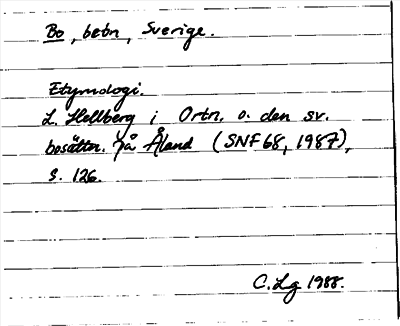 Bo, betn, Sverige.
Etymologi.
L. Hellberg i Ortn. o. den sv.
bosättn. på Åland (SNF 68, 1987),
s. 126.
C. Lg 1988.